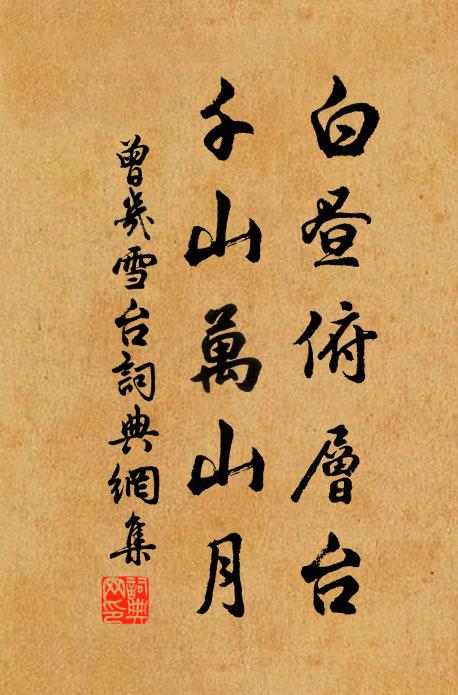 白昼俯層台
千山萬山月
曾幾雪台詞典網集
詞典網印